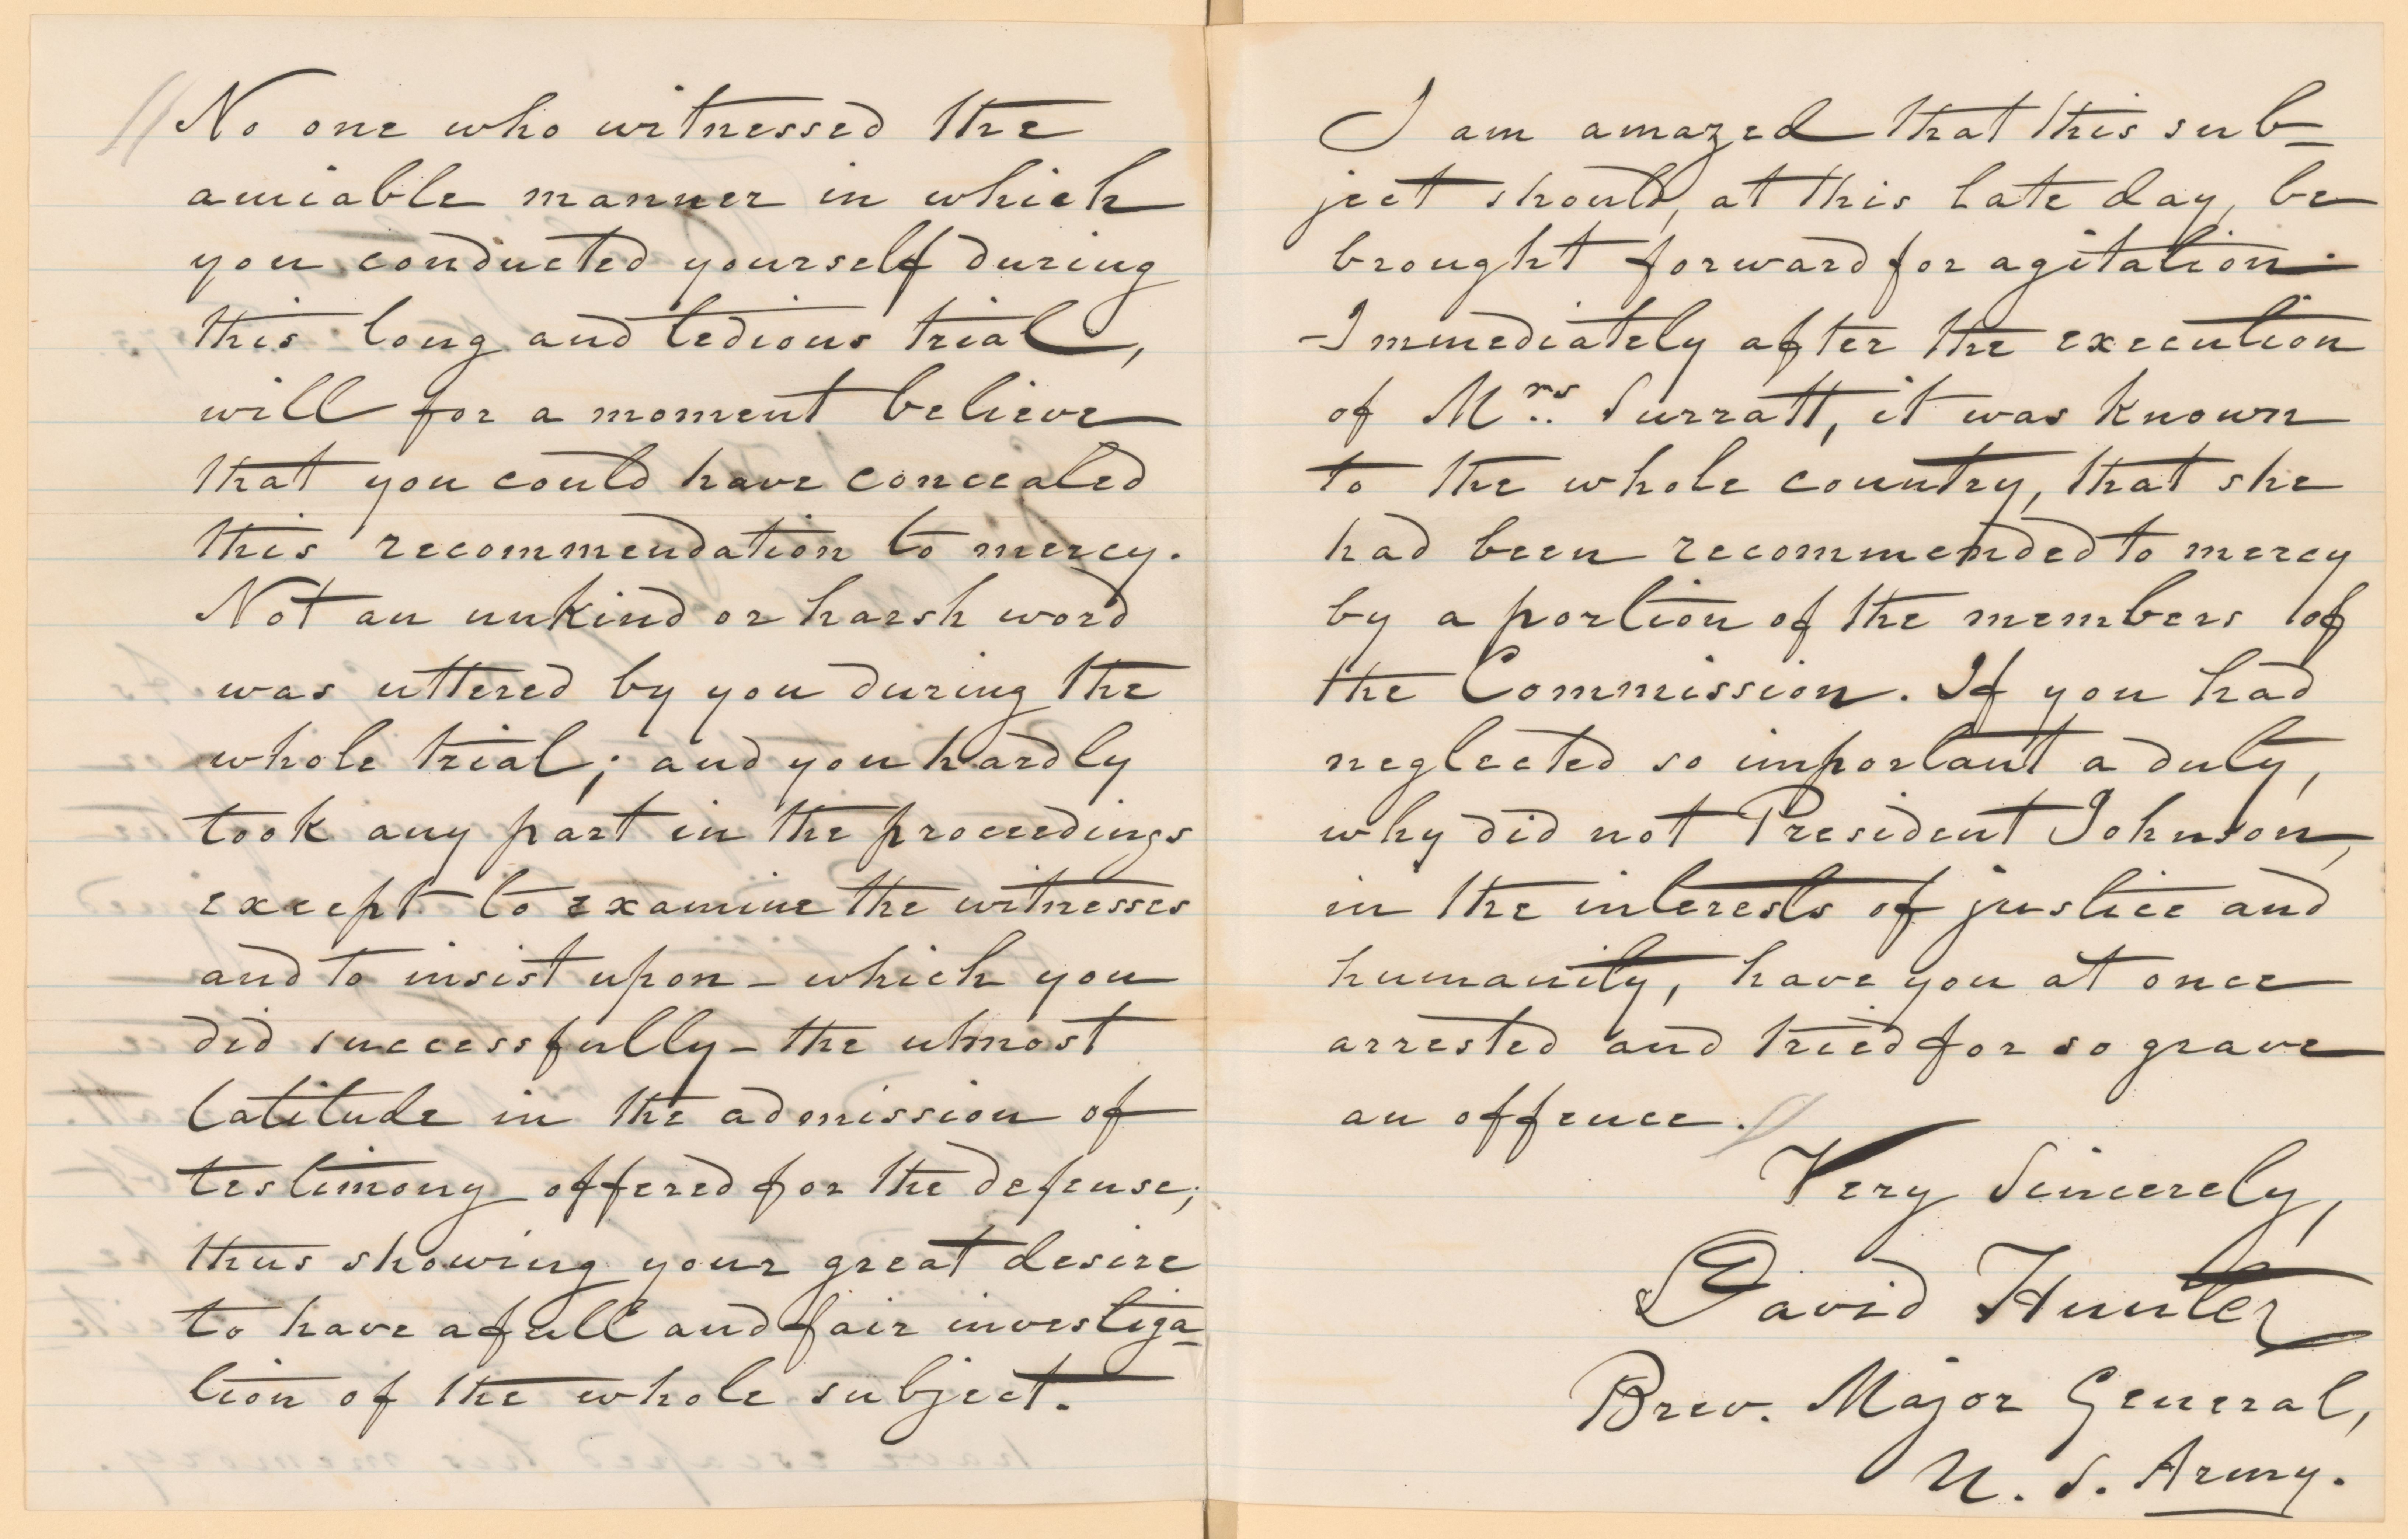 No one who witnessed the
amiable manner in which
you conducted yourself during
this long and tedious trial,
will for a moment believe
that you could have concealed
this recommendation to mercy.
Not an unkind or harsh word
was uttered by you during the
whole trial; and you hardly
took any part in the proceedings
except to examine the witnesses
and to insist upon - which you
did successfully - the utmost
latitude in the admission of
testimony offered for the defense;
thus showing your great desire
to have a full and fair investiga=
tion of the whole subject.
I am amazed that this sub=
ject should, at this late day, be
brought forward for agitation.
-Immediately after the execution
of Mrs. Surratt, it was known
to the whole country, that she
had been recommended to mercy
by a portion of the members of
the Commission. If you had
neglected so important a duty,
why did not President Johnson,
in the interests of justice and
humanity, have you at once
arrested and tried for so grave
an offence.
Very Sincerely,
David Hunter
Brev. Major General,
U. S. Army.